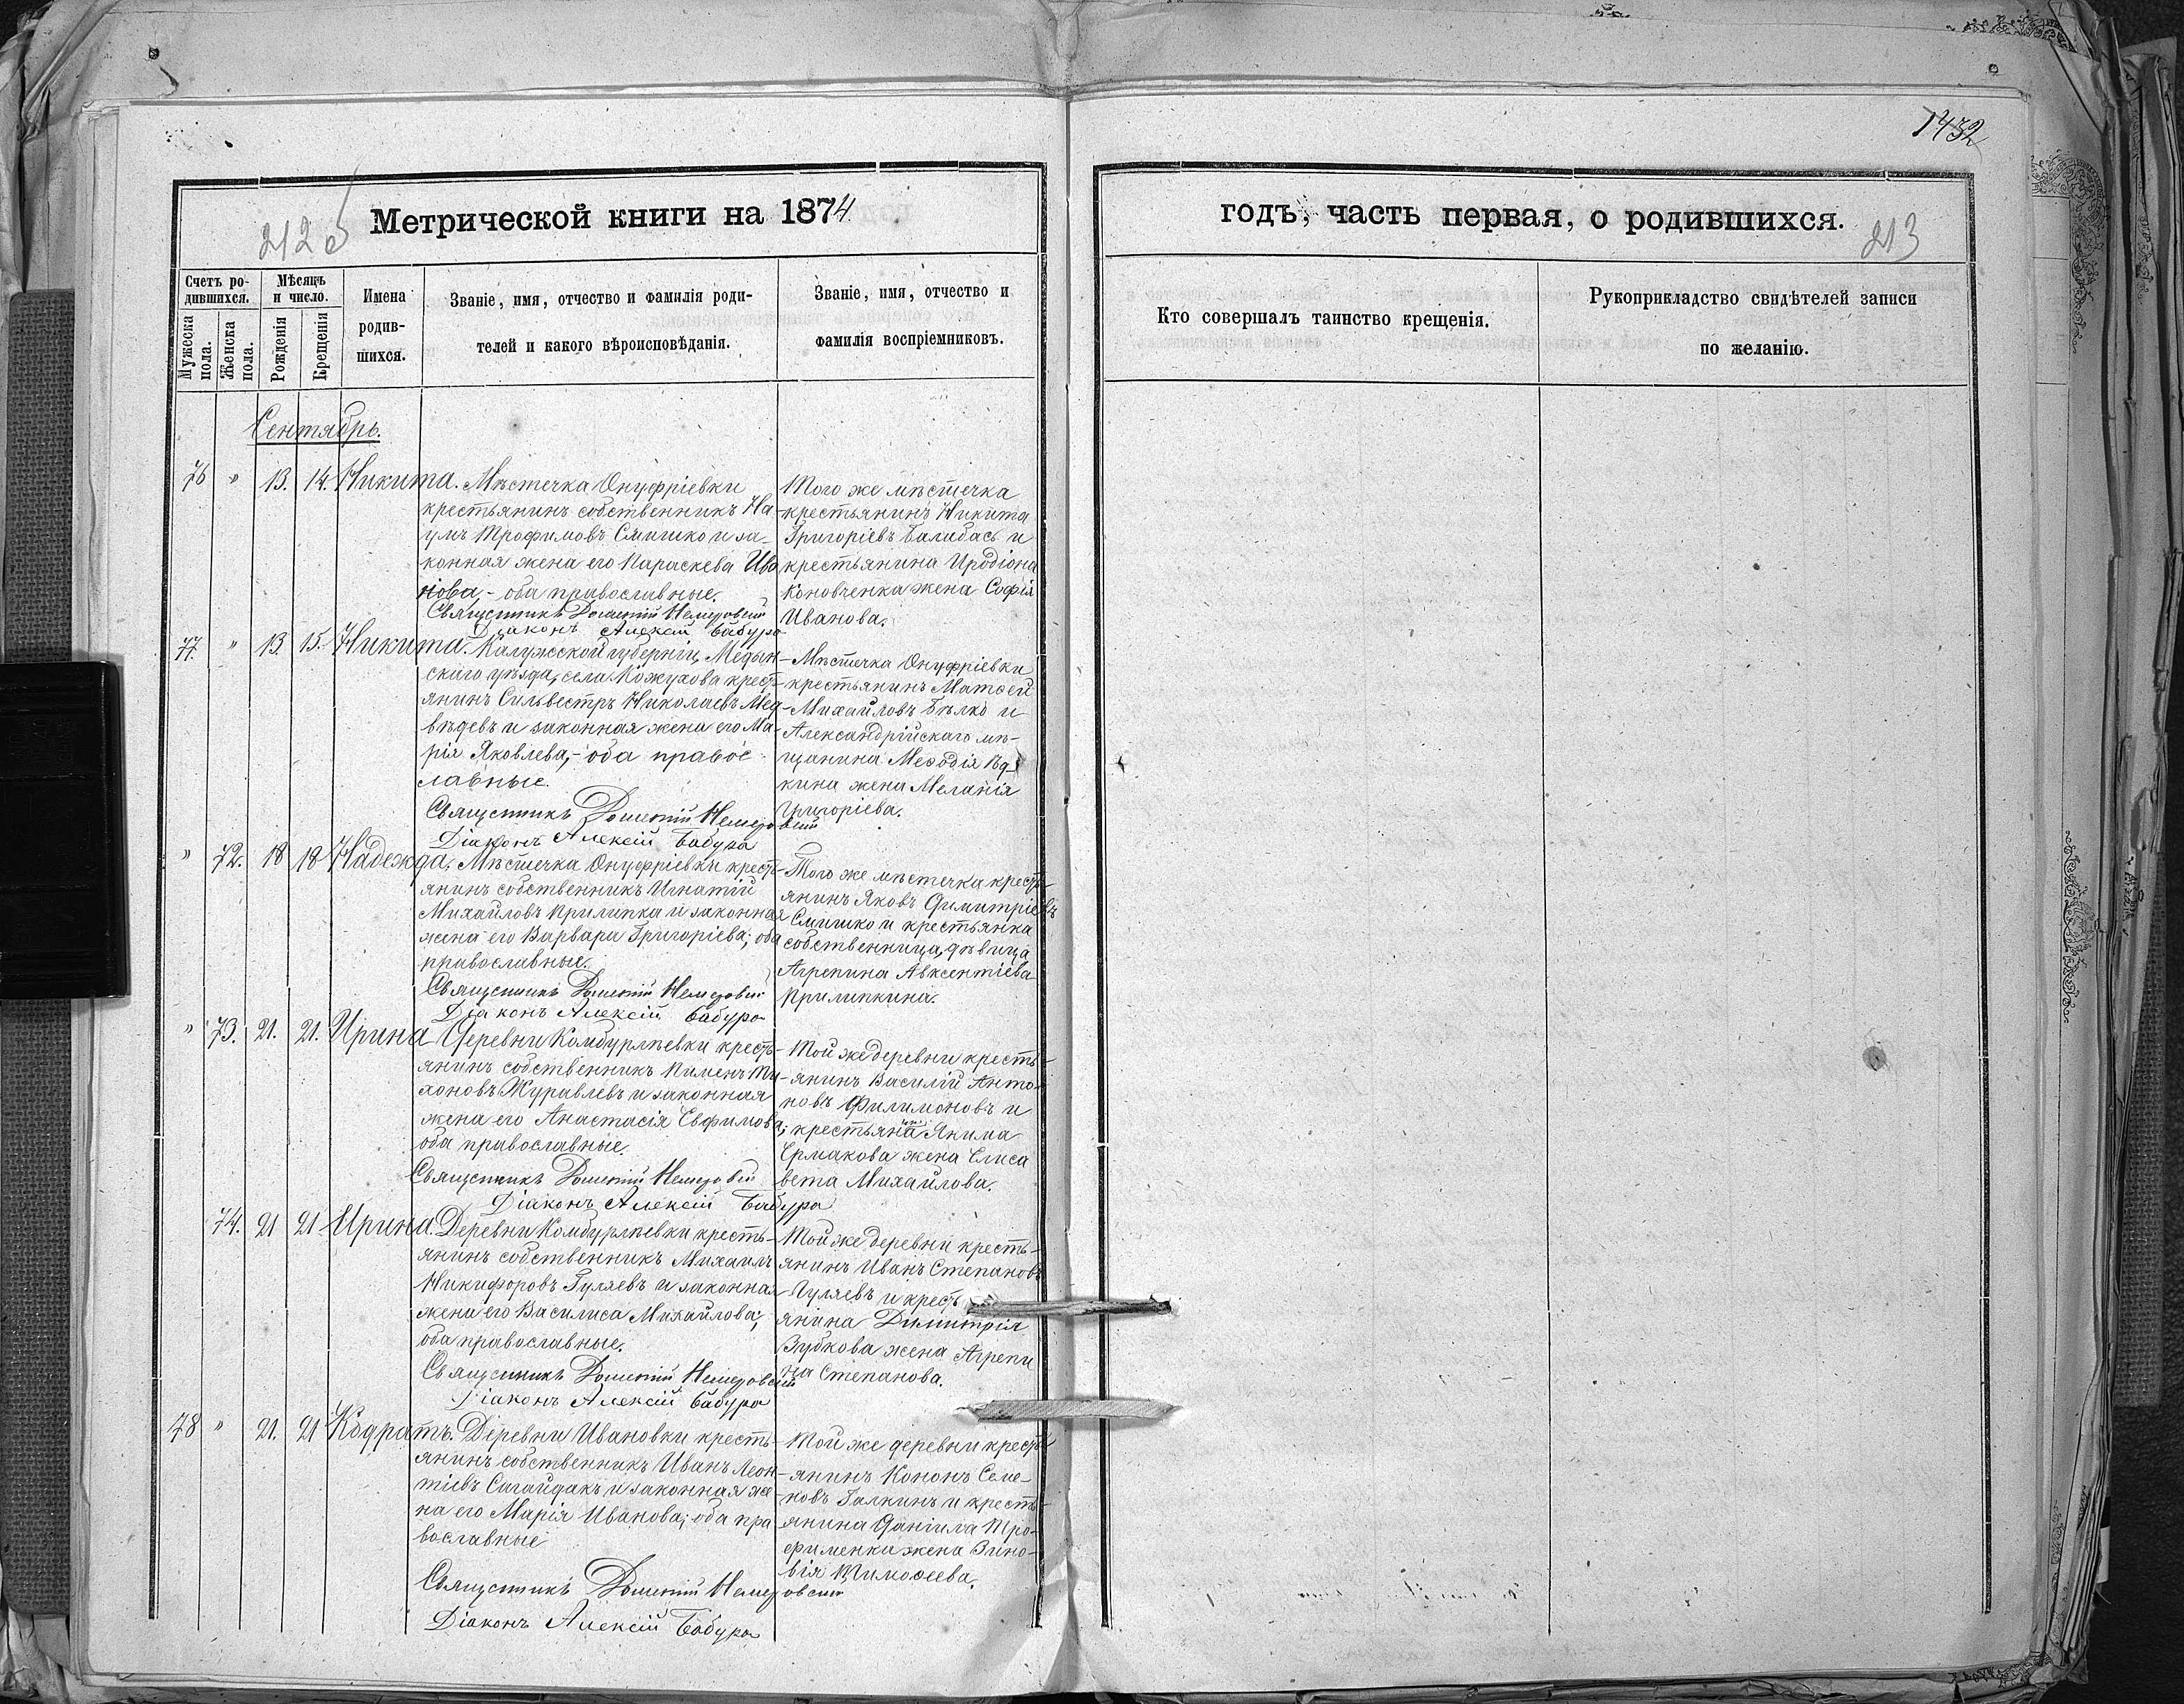 1432
212 б
Метрической книги на 1874
годъ, часть первая, о родившихся.
213
Счетъ ро-
дившихся.
Мѣсяцъ
и число.
Мужеска
пола.
Женска
пола.
Рожденія
Крещенія
Имена
родив-
шихся.
Званіе, имя, отчество и фамилія роди-
телей и какого вѣроисповѣданія.
Званіе, имя, отчество и
фамилія воспріемниковъ.
Кто совершалъ таинство крещенія.
Рукоприкладство свидѣтелей записи
по желанію.
Сентябрь.
76 " 13. 14. Никита.
Мѣстечка Онуфріевки
крестьянинъ собственникъ На-
умъ Трофимовъ Смишко и за-
конная жена его Параскева Ива
нова,- оба православные.
Священникъ Дометій Немировскій
Діаконъ Алексій Бабура
Того же мѣстечка
крестьянинъ Никита
Григоріевъ Балибасъ и
крестьянина Иродіона
Коновченка жена Софія
Иванова.
77. " 13. 15. Никита.
Калужской губерніи, Медын-
скаго уѣзда, села Кожухова крест-
янинъ Сильвестръ Николаевъ Мед-
вѣдевъ и законная жена его Ма-
рія Яковлева,- оба правос-
лавные.
Священникъ Дометій Немировскій
Діаконъ Алексій Бабура
Мѣстечка Онуфріевки
крестьянинъ Матѳей
Михайловъ Бѣлко и
Александрійскаго мѣ-
щанина Меѳодія
кина жена Меланія
Григоріева.
" 72. 18 18 Надежда.
Мѣстечка Онуфріевки кресть-
янинъ собственникъ Игнатій
Михайловъ Прилипка и законная
жена его Варвара Григоріева; оба
православные.
Священникъ Дометій Немировскій
Діаконъ Алексій Бабура
Того же мѣстечка кресть-
янинъ Яковъ Димитріевъ
Смишко и крестьянка
собственница, дѣвица
Агрепина Авксентіева
Прилипкина.
" 73. 21. 21. Ирина
Деревни Комбурлѣевки кресть-
янинъ собственникъ Пименъ Ти-
хоновъ Журавлевъ и законная
жена его Анастасія Евфимова;
оба православные.
Священникъ Дометій Немировскій
Діаконъ Алексій Бабура
Той же деревни кресть-
янинъ Василій Анто-
новъ Филимоновъ и
крестьянина Якима
Ермакова жена Елиса
вета Михайлова.
74. 21 21 Ирина.
Деревни Комбурлѣевки кресть-
янинъ собственникъ Михаилъ
Никифоровъ Гуляевъ и законная
жена его Василиса Михайлова;
оба православные.
Священникъ Дометій Немировскій
Діаконъ Алексій Бабура
Той же деревни кресть-
янинъ Иванъ Степановъ
Гуляевъ и кресть
янина Димитрія
Зубкова жена Агрепи
на Степанова.
78 " 21. 21 Кодратъ.
Деревни Ивановки кресть-
янинъ собственникъ Иванъ Леон-
тіевъ Сагайдакъ и законная же
на его Марія Иванова; оба пра
вославные
Священникъ Дометій Немировскій
Діаконъ Алексій Бабура
Той же деревни кресть-
янинъ Кононъ Семе-
новъ Галкинъ и кресть-
янина Даніила Тро-
фименки жена Зино-
вія Тимоѳеева.